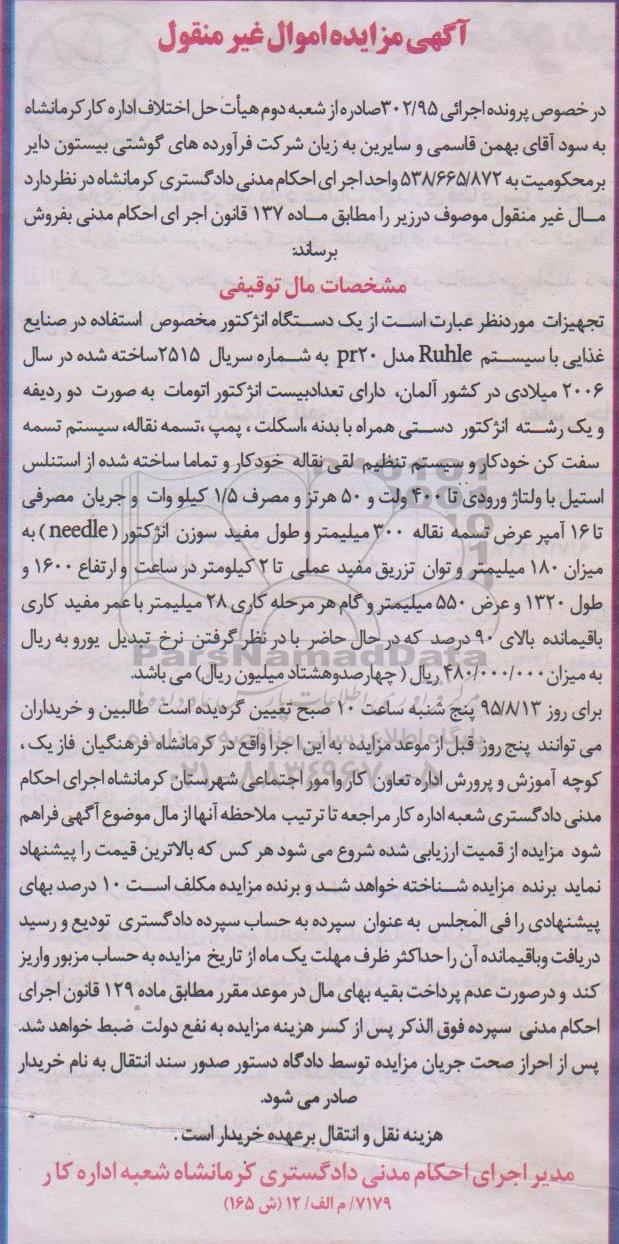 آگهی مزایده اموال غیر منقول
در خصوص پرونده اجرائی ۳۰۲/۹۵صادره از شعبه دوم هیأت حل اختلاف اداره کار کرمانشاه
به سود آقای بهمن قاسمی و سایرین به زیان شرکت فرآورده های گوشتی بیستون دایر
بر محکومیت به ۵۳۸/۶۶۵/۸۷۲ واحد اجر ای احکام مدنی دادگستری کرمانشاه در نظر دارد
مـال غیر منقول موصوف درزیر را مطابق مـاده ۱۳۷ قانون اجر ای احکام مدنی بفروش
برساند:
مشخصات مال توقیفی
تجهیزات موردنظر عبارت است از یک دستگاه انژکتور مخصوص استفاده در صنایع
غذایی با سیستم Ruhle مدل pr۲۰ به شماره سریال ۲۵۱۵ساخته شده در سال
۲۰۰۶ میلادی در کشور آلمان، دارای تعدادبیست انژکتور اتومات به صورت دو ردیفه
و یک رشته انژکتور دستی همراه با بدنه ،اسکلت ، پمپ ،تسمه نقاله، سیستم تسمه
سفت کن خودکار و سیستم تنظیم لقی نقاله خودکار و تماما ساخته شده از استنلس
استیل با ولتاژ ورودی تا ۴۰۰ ولت و ۵۰ هرتز و مصرف ۱/۵ کیلو وات و جریان مصرفی
تا ۱۶ آمپر عرض تسمه نقاله ۳۰۰ میلیمتر و طول مفید سوزن انژکتور ( needle ) به
میزان ۱۸۰ میلیمتر و توان تزریق مفید عملی تا ۲ کیلومتر در ساعت و ارتفاع ۱۶۰۰ و
طول ۱۳۲۰ و عرض ۵۵۰ میلیمتر و گام هر مرحله کاری ۲۸ میلیمتر با عمر مفید کاری
باقیمانده بالای ۹۰ درصد که در حال حاضر با در نظر گرفتن نرخ تبدیل یورو به ریال
به میزان ۴۸۰/۰۰۰/۰۰۰ ریال ( چهارصدوهشتاد میلیون ریال) می باشد.
برای روز ۹۵/۸/۱۳ پنج شنبه ساعت ۱۰ صبح تعیین گردیده است طالبین و خریداران
می توانند پنج روز قبل از موعد مزایده به این اجرا واقع در کرمانشاه فرهنگیان فاز یک ،
کوچه آموزش و پرورش اداره تعاون کار و امور اجتماعی شهرستان کرمانشاه اجرای احکام
مدنی دادگستری شعبه اداره کار مراجعه تا ترتیب ملاحظه آنها از مال موضوع آگهی فراهم
شود مزایده از قمیت ارزیابی شده شروع می شود هر کس که بالاترین قیمت را پیشنهاد
نماید برنده مزایده شناخته خواهد شد و برنده مزایده مکلف است ۱۰ درصد بهای
پیشنهادی را فی المجلس به عنوان سپرده به حساب سپرده دادگستری تودیع و رسید
دریافت وباقیمانده آن را حداکثر ظرف مهلت یک ماه از تاریخ مزایده به حساب مزبور واریز
کند و درصورت عدم پرداخت بقیه بهای مال در موعد مقرر مطابق ماده ۱۲۹ قانون اجرای
احکام مدنی سپرده فوق الذکر پس از کسر هزینه مزایده به نفع دولت ضبط خواهد شد.
پس از احراز صحت جریان مزایده توسط دادگاه دستور صدور سند انتقال به نام خریدار
صادر می شود.
هزینه نقل و انتقال بر عهده خریدار است .
مدیر اجرای احکام مدنی دادگستری کرمانشاه شعبه اداره کار
۷۱۷۹/ م الف/ ۱۲ (ش ۱۶۵)
ParsNamadData